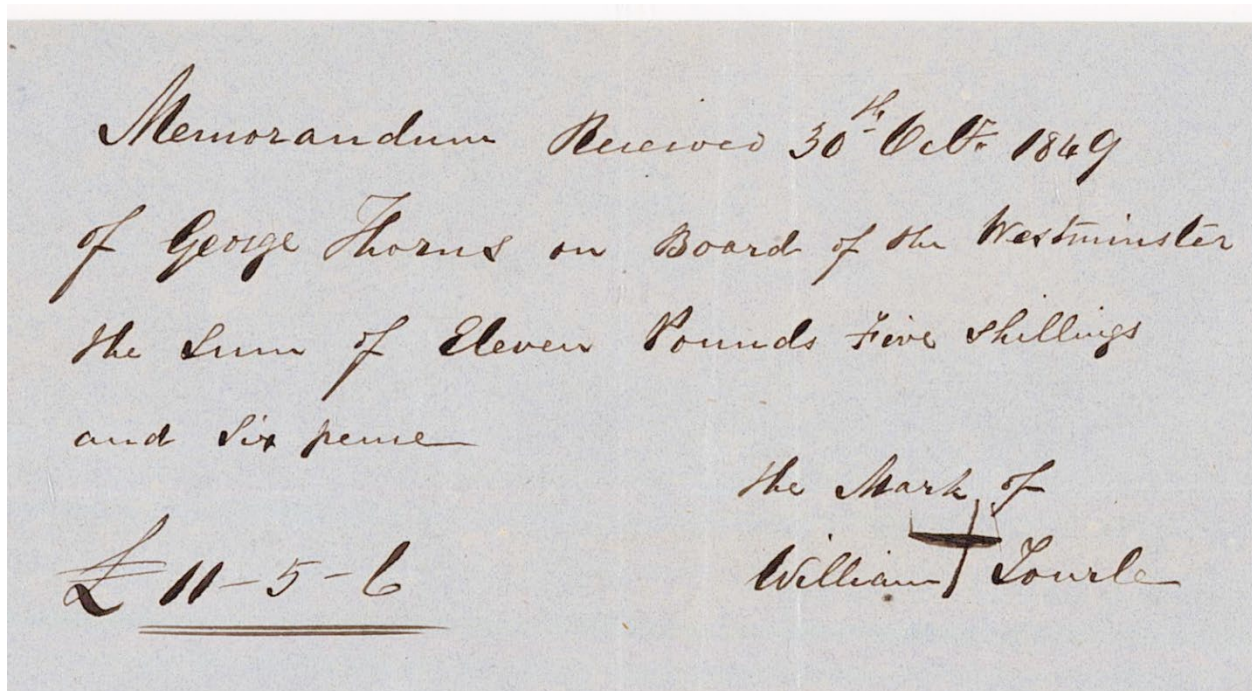 Memorandum Received 30th Octr. 1849
of George Thorns on Board of the Westminster
the Sum of Eleven Pounds Five Shillings
and Six pence
the Mark of
William Tourle
£ 11-5-6